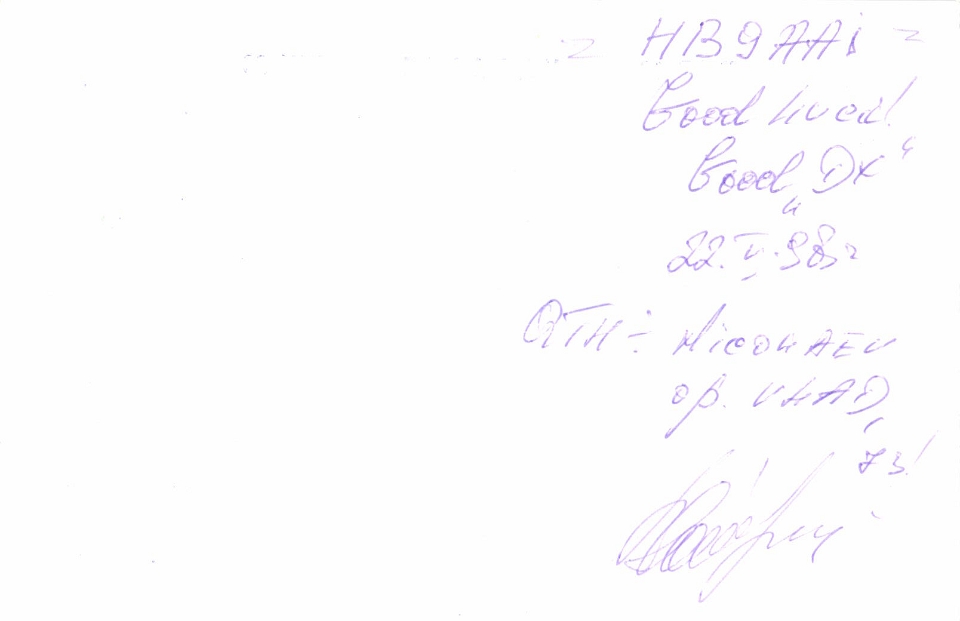 HB9AAI
Good Luck!
Good „DX“
22.V.98г
QTH - NICOLAEV
op. VLAD,
73!